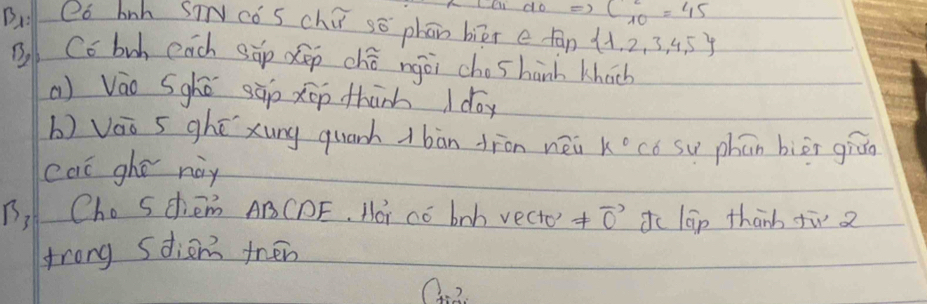 => C²10 = 45
B1: Có bnh STN có 5 chữ số phân biệt ∈ tập {1,2,3,4,5}
B2: Có bnh cách sắp xếp chỗ ngồi cho 5 hành khách
a) Vào 5 ghế sắp xếp thành 1 dãy
b) Vào 5 ghế xung quanh 1 bàn tròn nếu k° có sự phân biệt giữa
các ghế này
B3: Cho 5 điểm ABCDE. Hỏi có bnh vectơ ≠ 0⃗ đc lập thành từ 2
trong 5 điểm trên
Giải